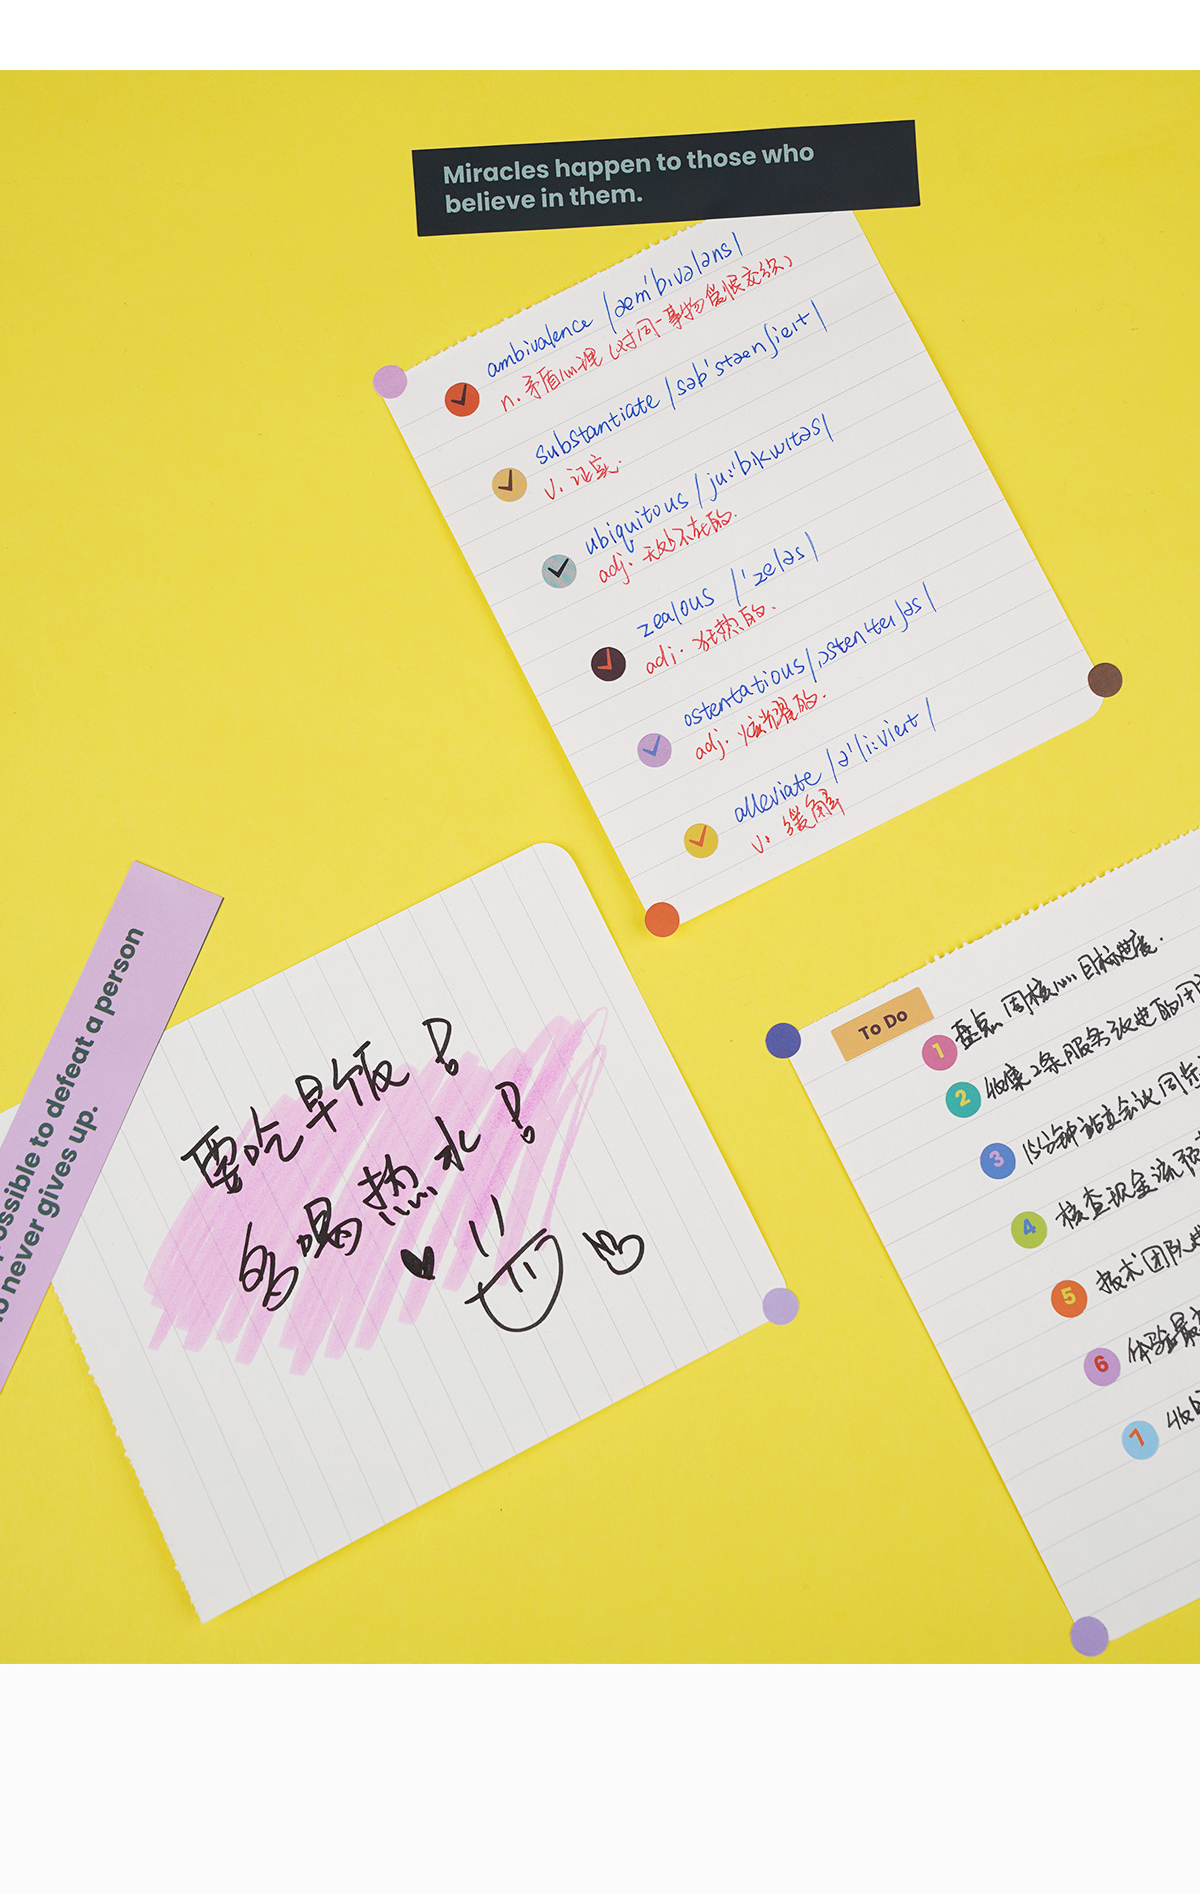 Miracles happen to those who
believe in them.
ambivalence /æm'bɪvələns/
n. 矛盾心理(对同一事物爱恨交织)
substantiate /səb'stænʃieɪt/
v. 证实.
ubiquitous /juː'bɪkwɪtəs/
adj. 无处不在的.
zealous /'zeləs/
adj. 狂热的.
ostentatious /ˌɒsten'teɪʃəs/
adj. 炫耀的.
alleviate /ə'liːvieɪt/
v. 缓解
possible to defeat a person
never gives up.
要吃早饭!
多喝热水!
To Do
1 盘点周核心目标进度.
2 收集2条服务改进的
3 15分钟站立会议同步
4 核查现金流预
5 技术团队
6 体验最
7 收